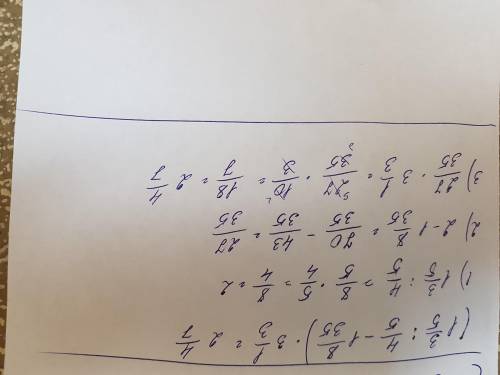 (1 3/5 : 4/5 - 1 8/35) · 3 1/3 = 2 4/7
1) 1 3/5 : 4/5 = 8/5 · 5/4 = 8/4 = 2
2) 2 - 1 8/35 = 70/35 - 43/35 = 27/35
3) 27/35 · 3 1/3 = 27/35 · 10/3 = 18/7 = 2 4/7